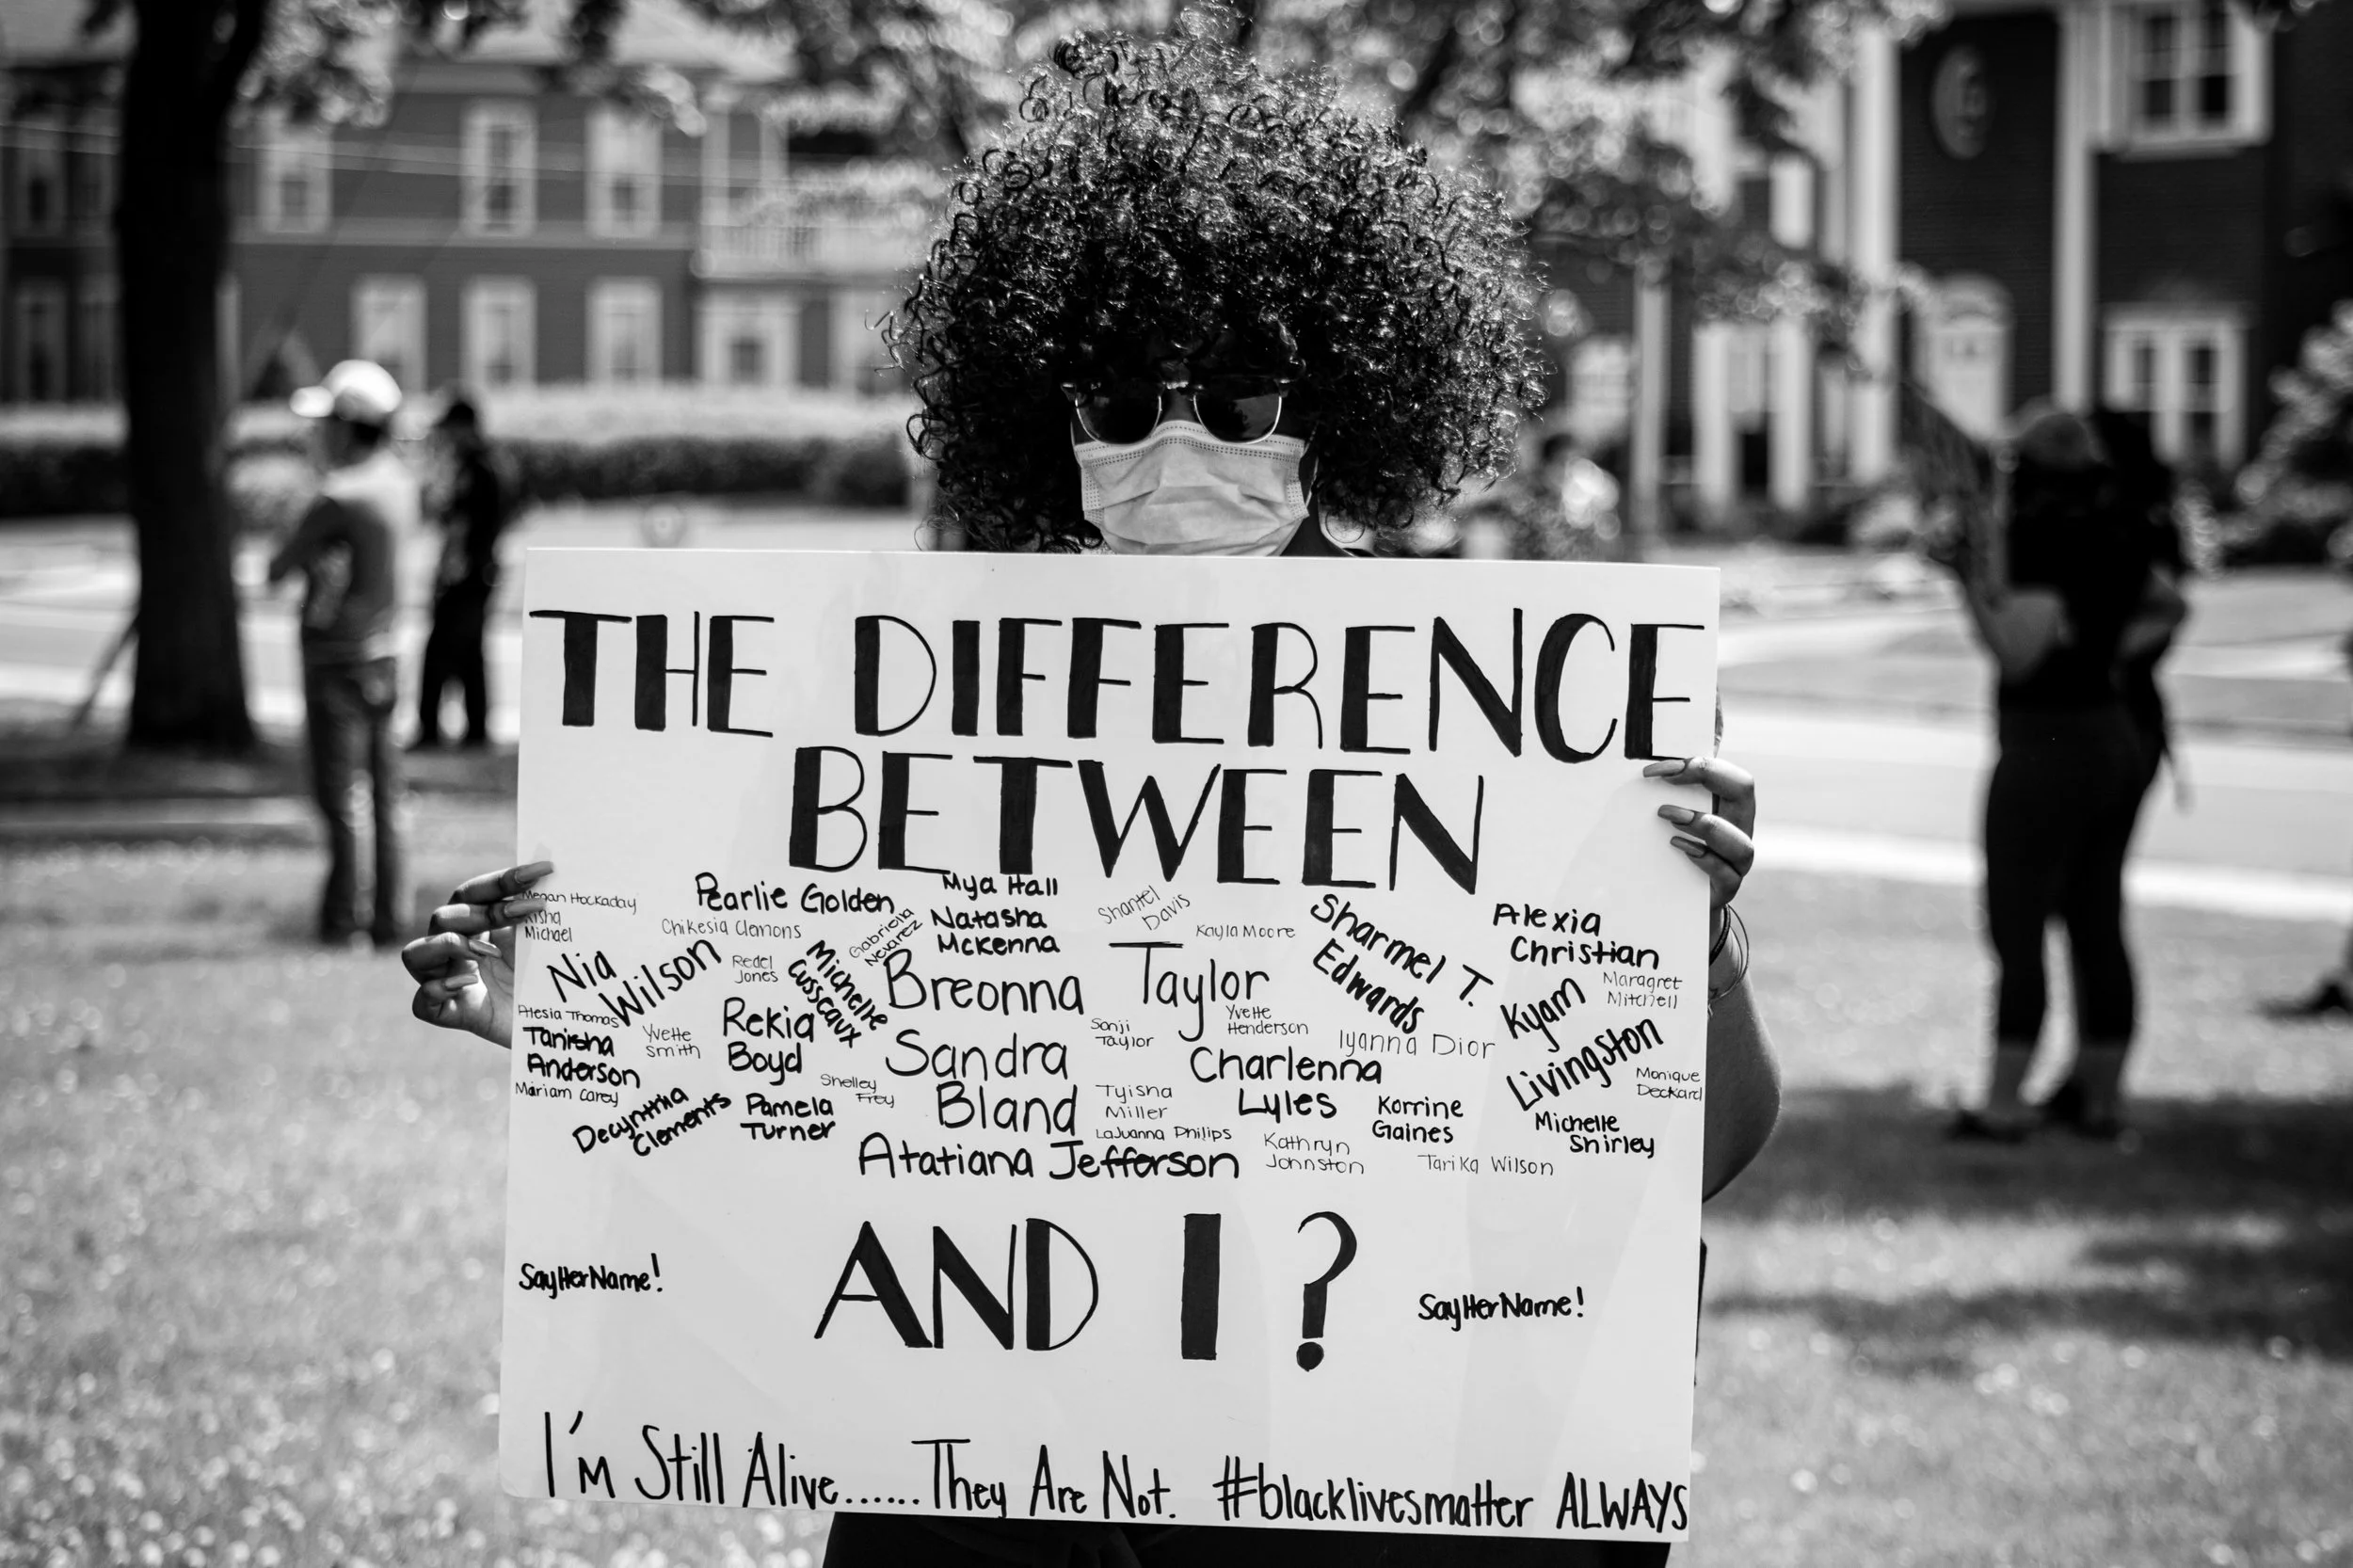 THE DIFFERENCE
BETWEEN
Megan Hockaday
Aisha
Michael
Pearlie Golden
Chikesia Clemons
Gabriella
Nevarez
Mya Hall
Natasha
McKenna
Shantel
Davis
Kayla Moore
Sharmel T.
Edwards
Alexia
Christian
Nia
Wilson
Redel
Jones
Michelle
Cusseaux
Breonna Taylor
Maragret
Mitchell
Kyam
Livingston
Alesia Thomas
Tanisha
Anderson
Yvette
Smith
Rekia
Boyd
Sandra
Bland
Sonji
Taylor
Yvette
Henderson
Iyanna Dior
Charlenna
Lyles
Monique
Deckard
Mariam Carey
Decynthia
Clements
Pamela
Turner
Shelley
Frey
Tyisha
Miller
LaJuanna Philips
Korrine
Gaines
Michelle
Shirley
Atatiana Jefferson
Kathryn
Johnston
Tarika Wilson
AND I?
SayHerName!
SayHerName!
I'm Still Alive...... They Are Not. #blacklivesmatter ALWAYS